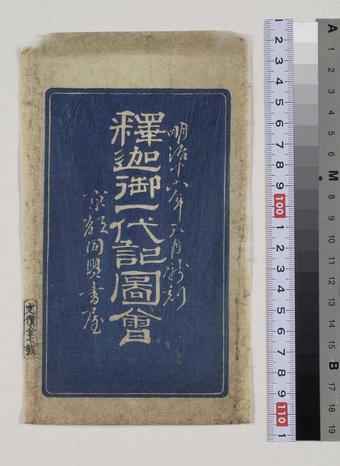 明治十六年
釋迦御一代記圖會
京都
書屋
1 2 3 4 5 6 7 8 9 100 1 2 3 4 5 6 7 8 9 110 1
A 1 2 3 4 5 6 M 8 9 10 11 12 13 14 15 B 17 18 19